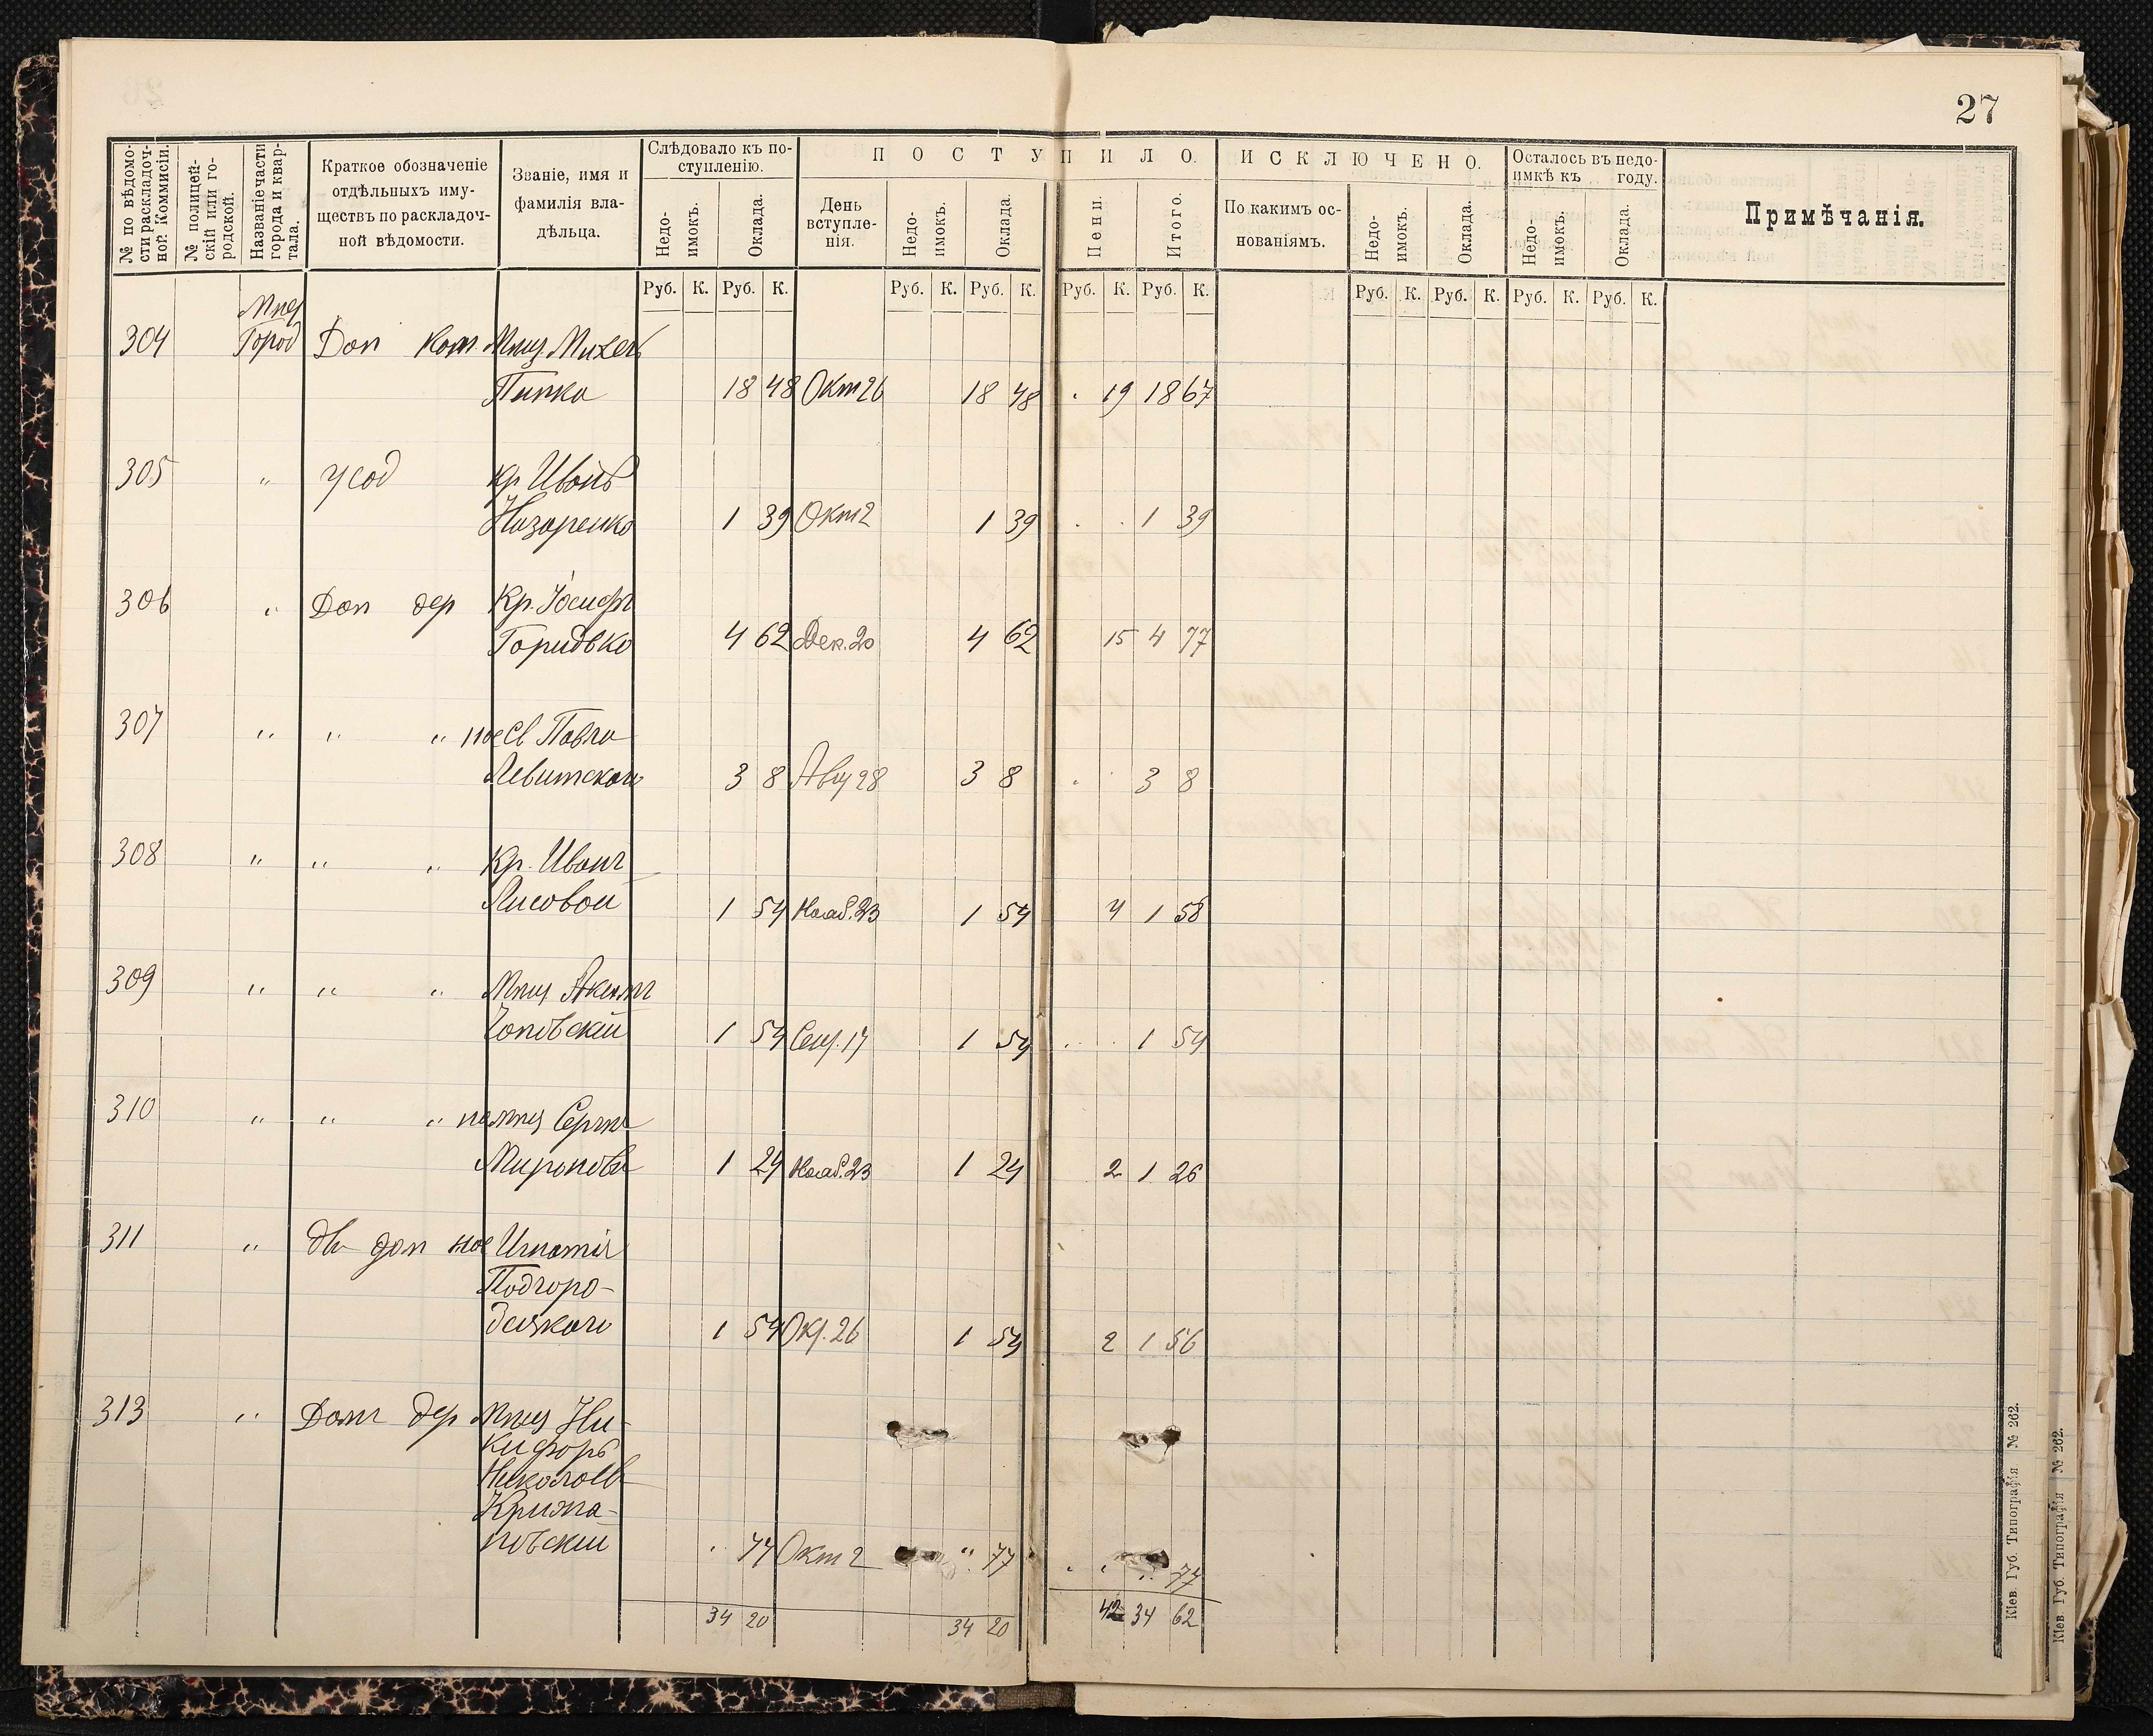 27
№ по вѣдомо-
сти раскладоч-
ной Коммисіи.
№ полицей-
скій или го-
родской.
Названіе части
города и квар-
тала.
Краткое обозначеніе
отдѣльныхъ иму-
ществъ по раскладоч-
ной вѣдомости.
Званіе, имя и
фамилія вла-
дѣльца.
Слѣдовало къ по-
ступленію.
Недо-
имокъ.
Оклада.
ПОСТУПИЛО.
День
вступле-
нія.
Недо-
имокъ.
Оклада.
Пени.
Итого.
ИСКЛЮЧЕНО.
По какимъ ос-
нованіямъ.
Недо-
имокъ.
Оклада.
Осталось въ недо-
имкѣ къ году.
Недо-
имокъ.
Оклада.
Примѣчанія.
Руб. К. Руб. К. Руб. К. Руб. К. Руб. К. Руб. К. Руб. К. Руб. К. Руб. К. Руб. К.
304 Город Дом Кам. Мѣщ. Михель
Пипка 18 48 Окт 26 18 48 . 19 18 67
305 " усад кр Иванъ
Назаренко 1 39 Окт 2 1 39 . . 1 39
306 " Дом дер Кр. Іосифъ
4 62 Дек. 20 4 62 15 4 77
307 " " " нас Св Павла
Левитскаго 3 8 Авг 28 3 8 . . 3 8
308 " " " Кр. Иванъ
Лисовой 1 54 Нояб. 23 1 54 4 1 58
309 " " " Мѣщ Акимъ
1 54 Сен. 17 1 54 . . 1 54
310 " " " Мѣщ Сергѣя
Миронова 1 24 Нояб. 23 1 24 2 1 26
311 " дв дом нас Игнатія
Подгоро-
децкаго 1 54 Ок. 26 1 54 2 1 56
313 " Домъ дер Мѣщ Ни-
кифоръ
Николаев
Крижа-
новскій . 77 Окт 2 " 77 . . .. 77
34 20 34 20 42 34 62
Кіев. Губ. Типографія № 262.
Кіев. Губ. Типографія № 262.